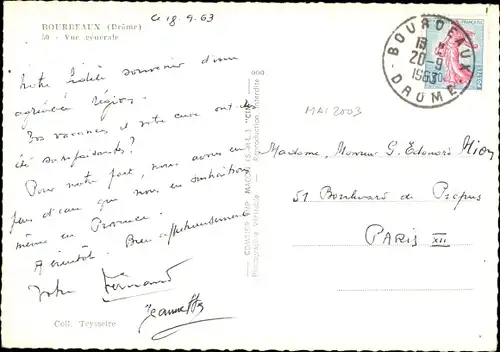 BOURDEAUX (Drôme)
50 - Vue générale
Ce 18-9-63
Notre fidèle souvenir d'une
agréable région.
Vos vacances et votre cure ont-elles
été satisfaisantes?
Pour notre part, nous avons eu
plus d'eau que nous en souhaitions
même en Provence.
A bientôt. Bien affectueusement
Votre Fernand
Jeannette
Coll. Teysseire
COMBIER IMP. MACON (S.-et-L.) "CIM"
Photographie Véritable - Reproduction interdite
BOURDEAUX
20-9
1963
DROME
MAI 2003
Madame, Monsieur G. Edouard
51 Boulevard de Picpus
PARIS XII